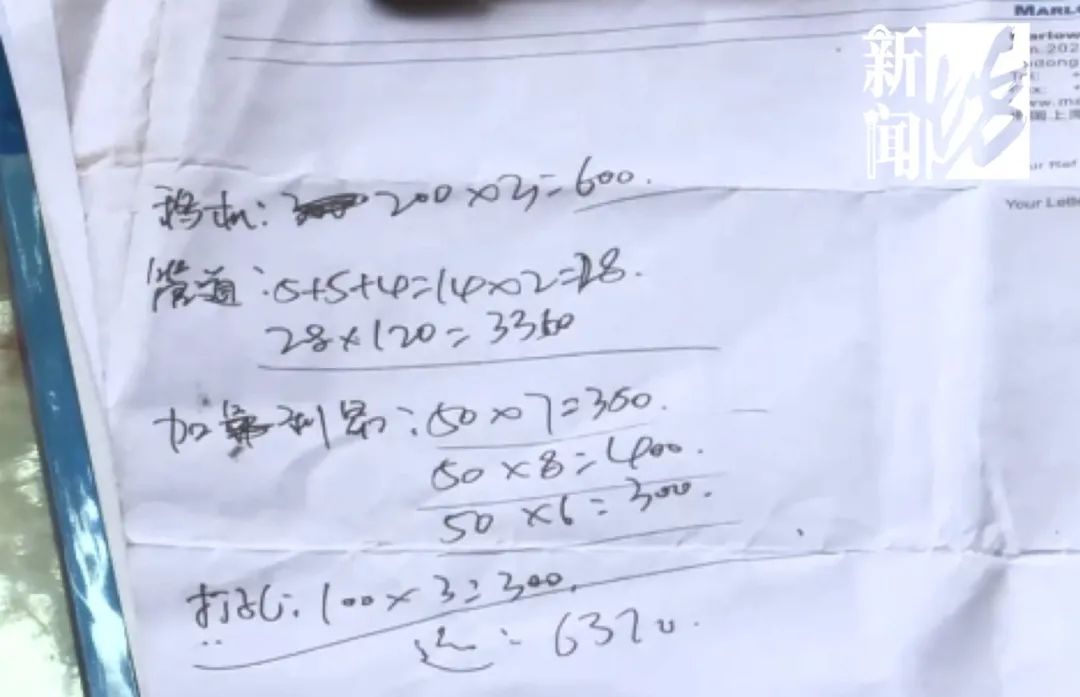 MARLO
新闻坊
Marlow
m.202
udong
Tel: +
ax: +
www.ma
中国上海
ur Ref
Your Lette
移机: 200×3=600.
管道:5+5+4=14×2=28.
28×120=3360
加氟利昂:50×7=350.
50×8=400.
50×6=300.
打孔:100×3=300.
6370.